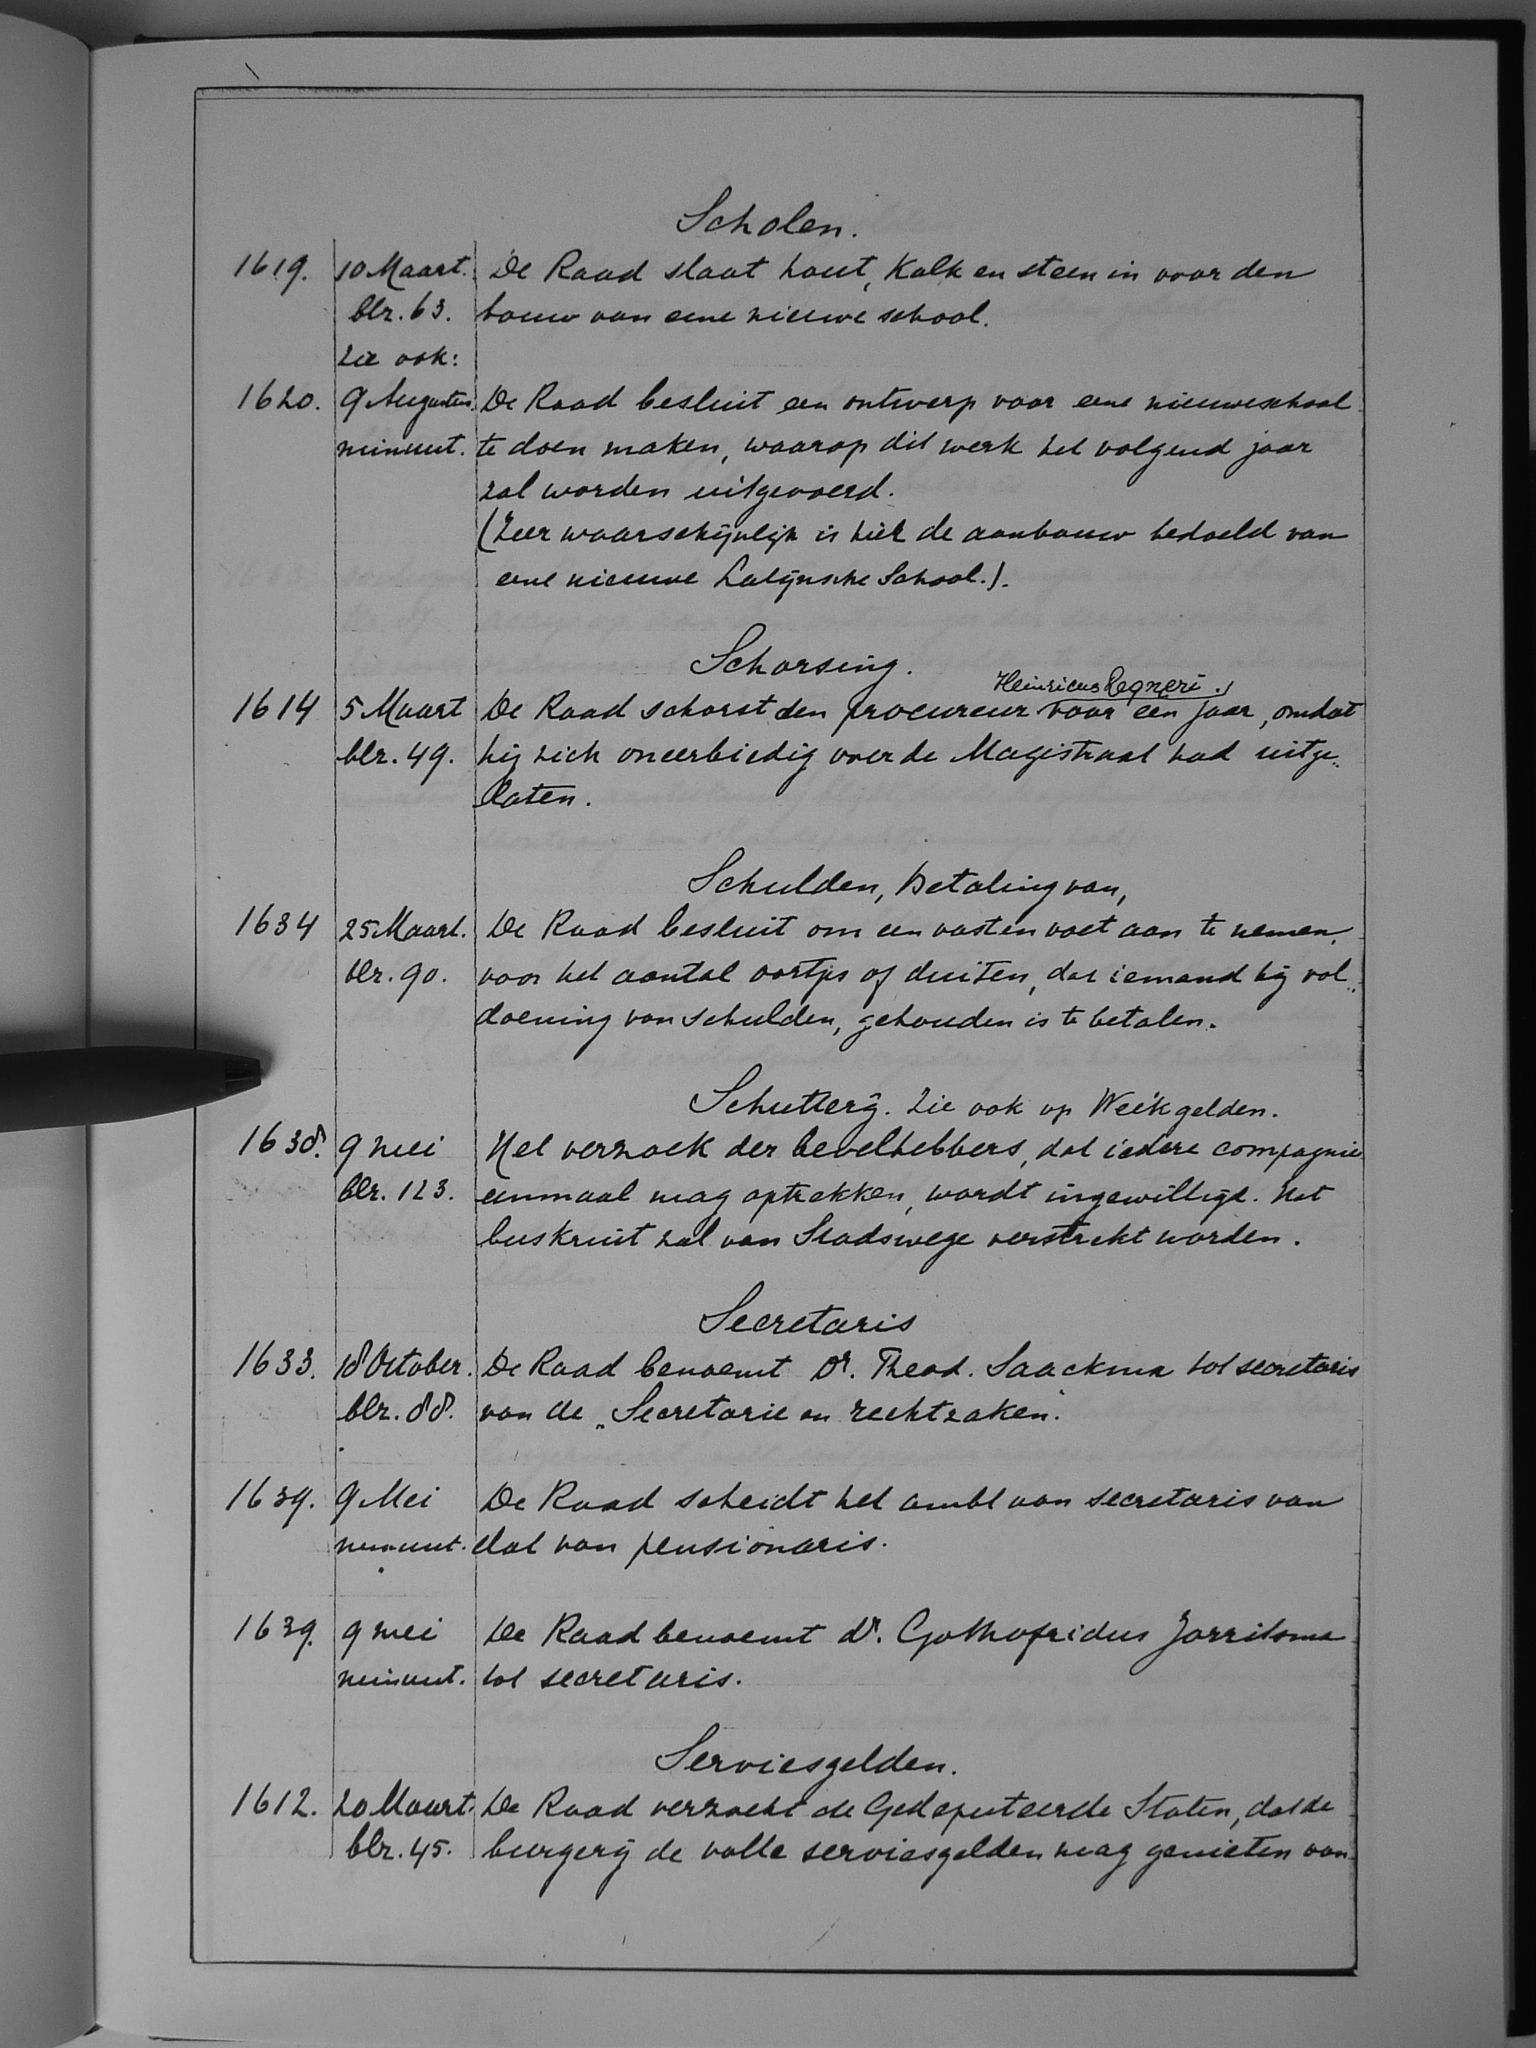 Scholen.
1619. 10 Maart. De Raad slaat hout, Kalk en steen in voor den
blz. 63. bouw van eene nieuwe school.
Zie ook:
1620. 9 Augustus. De Raad besluit een ontwerp voor eene nieuwe school
minuut. te doen maken, waarop dit werk het volgend jaar
zal worden uitgevoerd.
(Zeer waarschijnlijk is hier de aanbouw bedoeld van
eene nieuwe Latijnsche School.).
Schorsing.
Heinricus Regneri.
1614 5 Maart De Raad schorst den procureur voor een jaar, omdat
blz. 49. hij zich oneerbiedig over de Magistraat had uitge„
laten.
Schulden, Betaling van,
1634 25 Maart. De Raad besluit om een vasten voet aan te nemen,
blz. 90. voor het aantal oortjes of duiten, dat iemand bij vol„
doening van schulden, gehouden is te betalen.
Schutterij. Zie ook op Weekgelden.
1638. 9 mei Het verzoek der bevelhebbers, dat iedere compagnie
blz. 123. eenmaal mag optrekken, wordt ingewilligd. Het
buskruit zal van Stadswege verstrekt worden.
Secretaris
1633. 18 October. De Raad benoemt Dr. Theod. Saackma tot secretaris
blz. 88. van de „Secretarie en rechtzaken."
1639. 9 Mei De Raad scheidt het ambt van secretaris van
minuut. dat van pensionaris.
1639. 9 mei De Raad benoemt dr. Gothofridus Jorritsma
minuut. tot secretaris.
Serviesgelden.
1612. 20 Maart. De Raad verzoekt de Gedeputeerde Staten, dat de
blz. 45. burgerij de volle serviesgelden mag genieten van